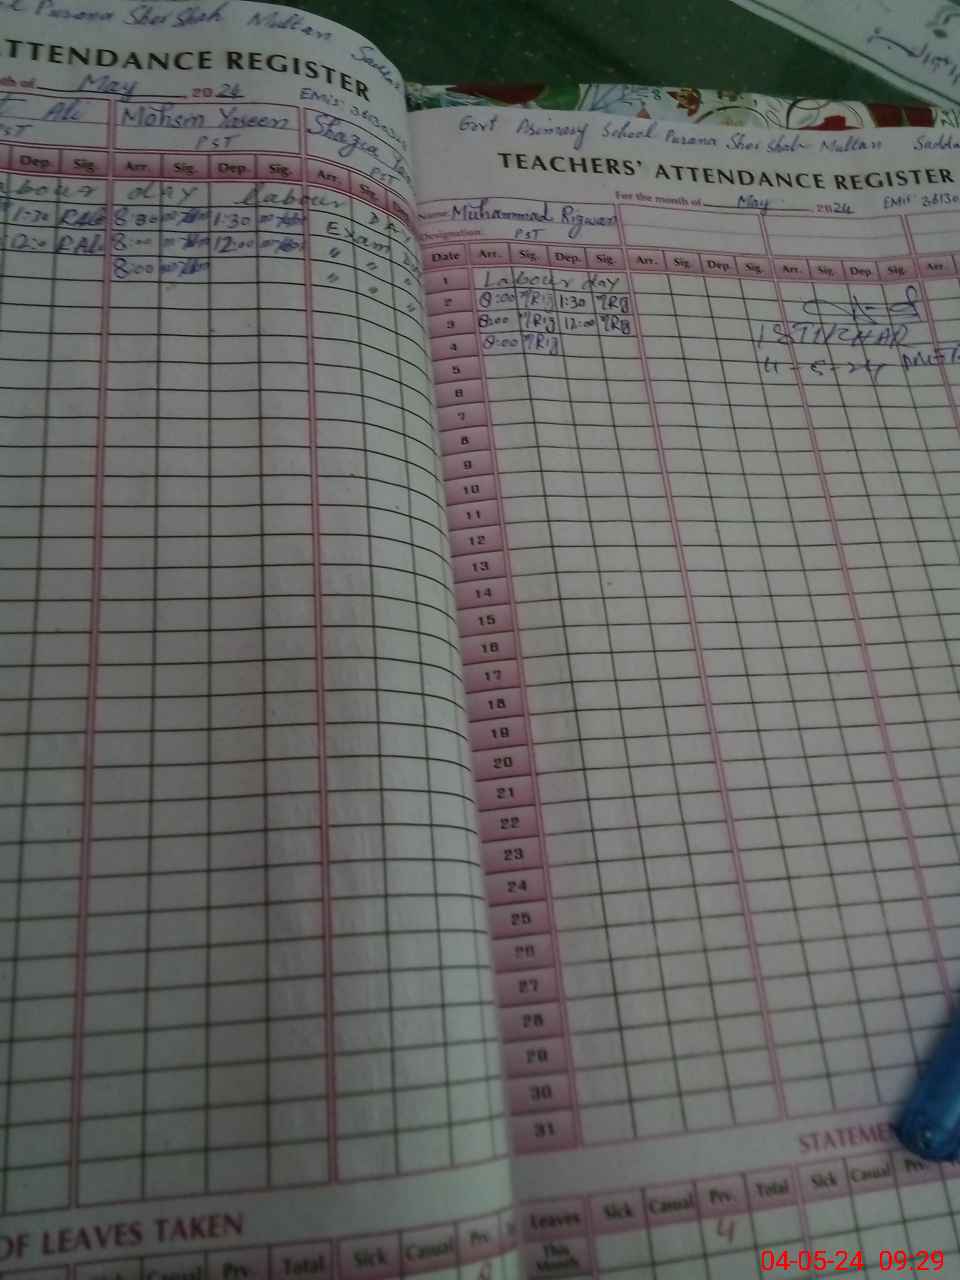 Purana Sher Shah Multan Sadda
ATTENDANCE REGISTER
th of May 2024 EMIS:
Ali Mohsin Yaseen Shazia
PST PST PST
Dep. Sig. Arr. Sig. Dep. Sig. Arr. Sig.
bour day Labour Day
1:30 RAli 8:30 1:30 Exam
12:0 RAli 8:00 12:00 " "
8:00 " "
OF LEAVES TAKEN
Casual Prv. Total Sick Casual Prv.
Govt Primary School Purana Sher Shah Multan Sadda
TEACHERS' ATTENDANCE REGISTER
For the month of May 2024 EMIS: 36130
Name: Muhammad Rizwan
Designation: PST
Date Arr. Sig. Dep. Sig. Arr. Sig. Dep. Sig. Arr. Sig. Dep. Sig. Arr.
1 Labour day
2 8:00 MRiz 1:30 MRiz
3 8:00 MRiz 12:00 MRiz
4 8:00 MRiz
5
6
7
8
9
10
11
12
13
14
15
16
17
18
19
20
21
22
23
24
25
26
27
28
29
30
31
4-5-24
STATEMEN
Leaves Sick Casual Prv. Total Sick Casual Prv.
This Month 4
04-05-24 09:29